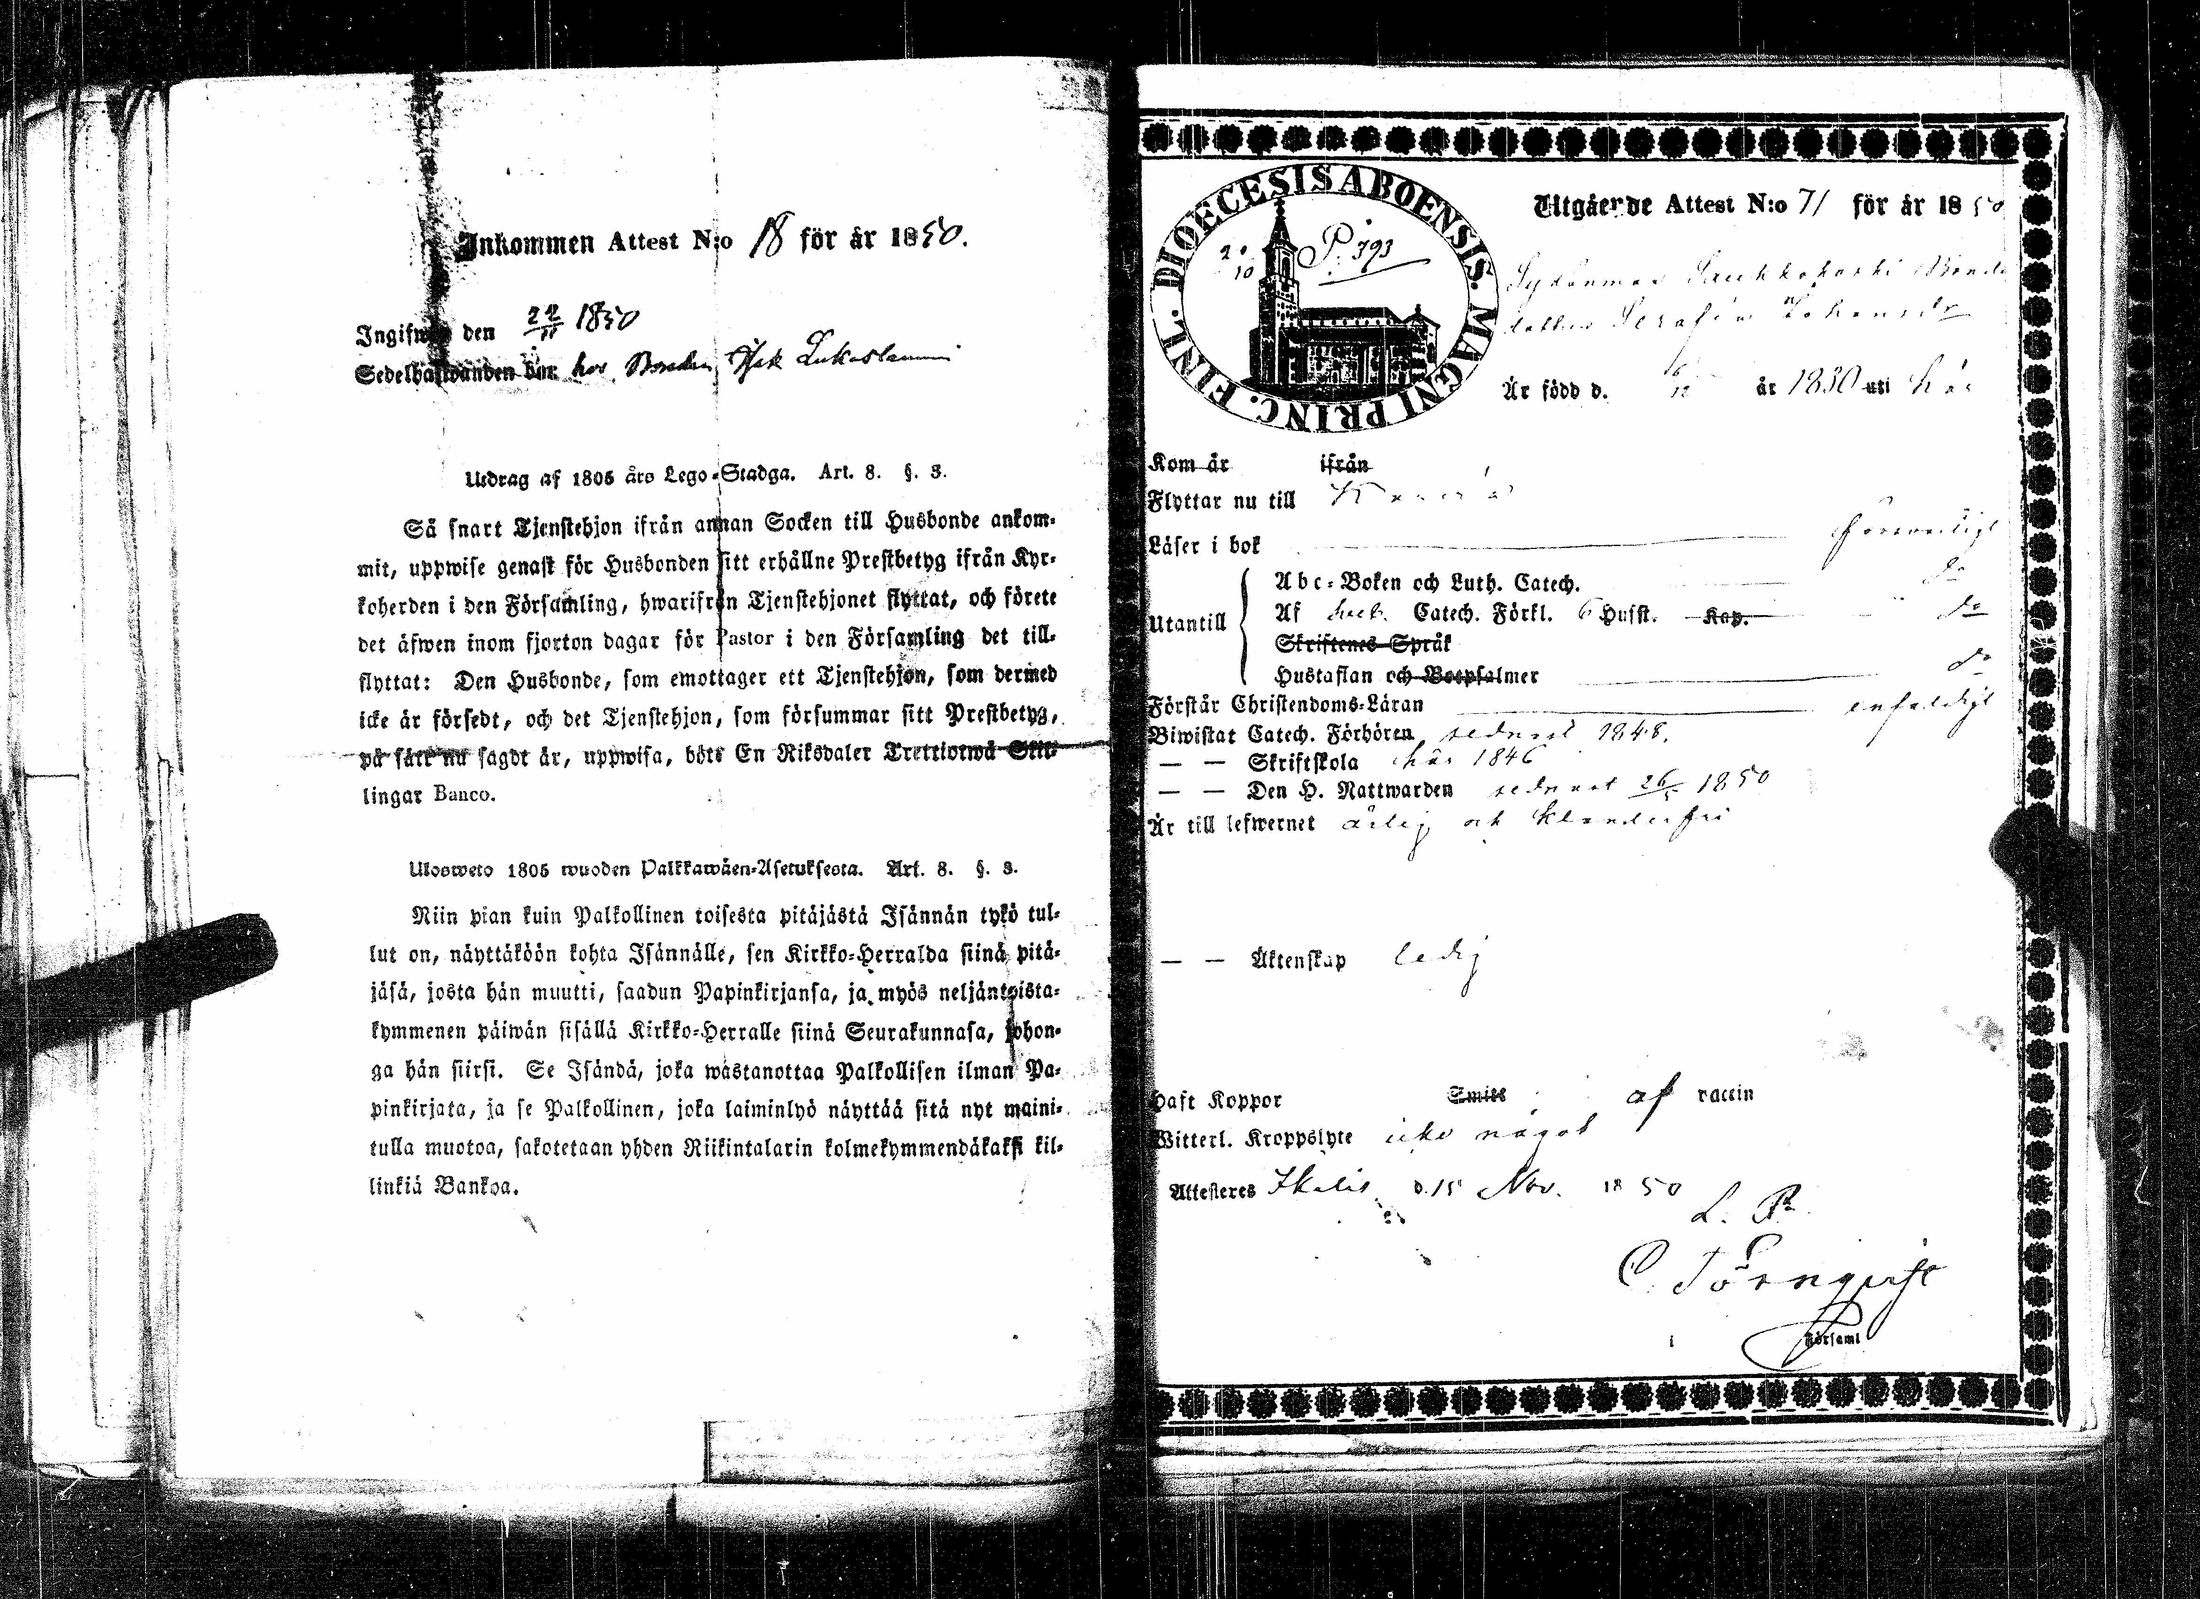 Inkommen Attest N:o 18 för år 1850.
Ingifwen den 22/11 1850
Sedelhafwanden bor hos Bonden Isak Lukaslammi
Utdrag af 1805 års Lego-Stadga. Art. 8. §. 3.
Så snart Tjenstehjon ifrån annan Socken till Husbonde ankom-
mit, uppwise genast för Husbonden sitt erhållne Prestbetyg ifrån Kyr-
koherden i den Församling, hwarifrån Tjenstehjonet flyttat, och förete
det äfwen inom fjorton dagar för Pastor i den Församling det till-
flyttat: Den Husbonde, som emottager ett Tjenstehjon, som dermed
icke är försedt, och det Tjenstehjon, som försummar sitt Prestbetyg,
på sätt nu sagdt är, uppwisa, böte En Riksdaler Trettiotwå Skil-
lingar Banco.
Ulosweto 1805 wuoden Palkkawäen-Asetuksesta. Art. 8. §. 3.
Niin pian kuin Palkollinen toisesta pitäjästä Isännän tykö tul-
lut on, näyttäköön kohta Isännälle, sen Kirkko-Herralda siinä pitä-
jäsä, josta hän muutti, saadun Papinkirjansa, ja myös neljäntoista-
kymmenen päiwän sisällä Kirkko-Herralle siinä Seurakunnasa, johon-
ga hän siirsi. Se Isändä, joka wastanottaa Palkollisen ilman Pa-
pinkirjata, ja se Palkollinen, joka laiminlyö näyttää sitä nyt maini-
tulla muotoa, sakotetaan yhden Riikintalarin kolmekymmendäkaksi kil-
linkiä Bankoa.
DIOECESIS ABOENSIS. MAGNI PRINC. FINL.
20/10 P. 393
Utgående Attest N:o 71 för år 1850
Bonde
dotter Serafina Johansdr
Är född d. 6/12 år 1830 uti här
Kom år ifrån
Flyttar nu till
Läser i bok försvarligt
Utantill
Abc-Boken och Luth. Catech. do
Af Catech. Förkl. 6 Hufst. Kap. do
Skriftenes Språk
Hustaflan och Botpsalmer do
Förstår Christendoms-Läran enfaldigt
Biwistat Catech. Förhören sednast 1848.
— — Skriftskola här 1846
— — Den H. Nattwarden sednast 26/5 1850
Är till lefwernet ärlig och klanderfri
— — Äktenskap ledig
Haft Koppor Smitt af vaccin
Witterl. Kroppslyte icke något
Attesteras Ikalis d. 15 Nov. 1850
C. Törnqvist
i Församl